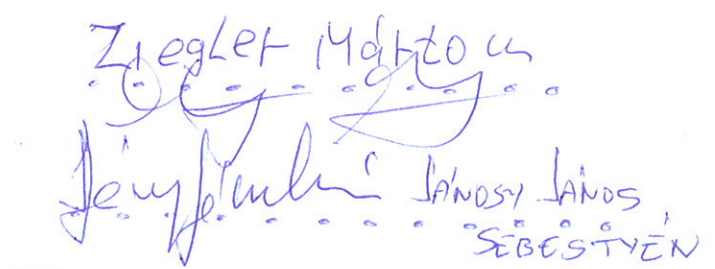 Ziegler Márton
JÁNOSY JÁNOS
SEBESTYÉN